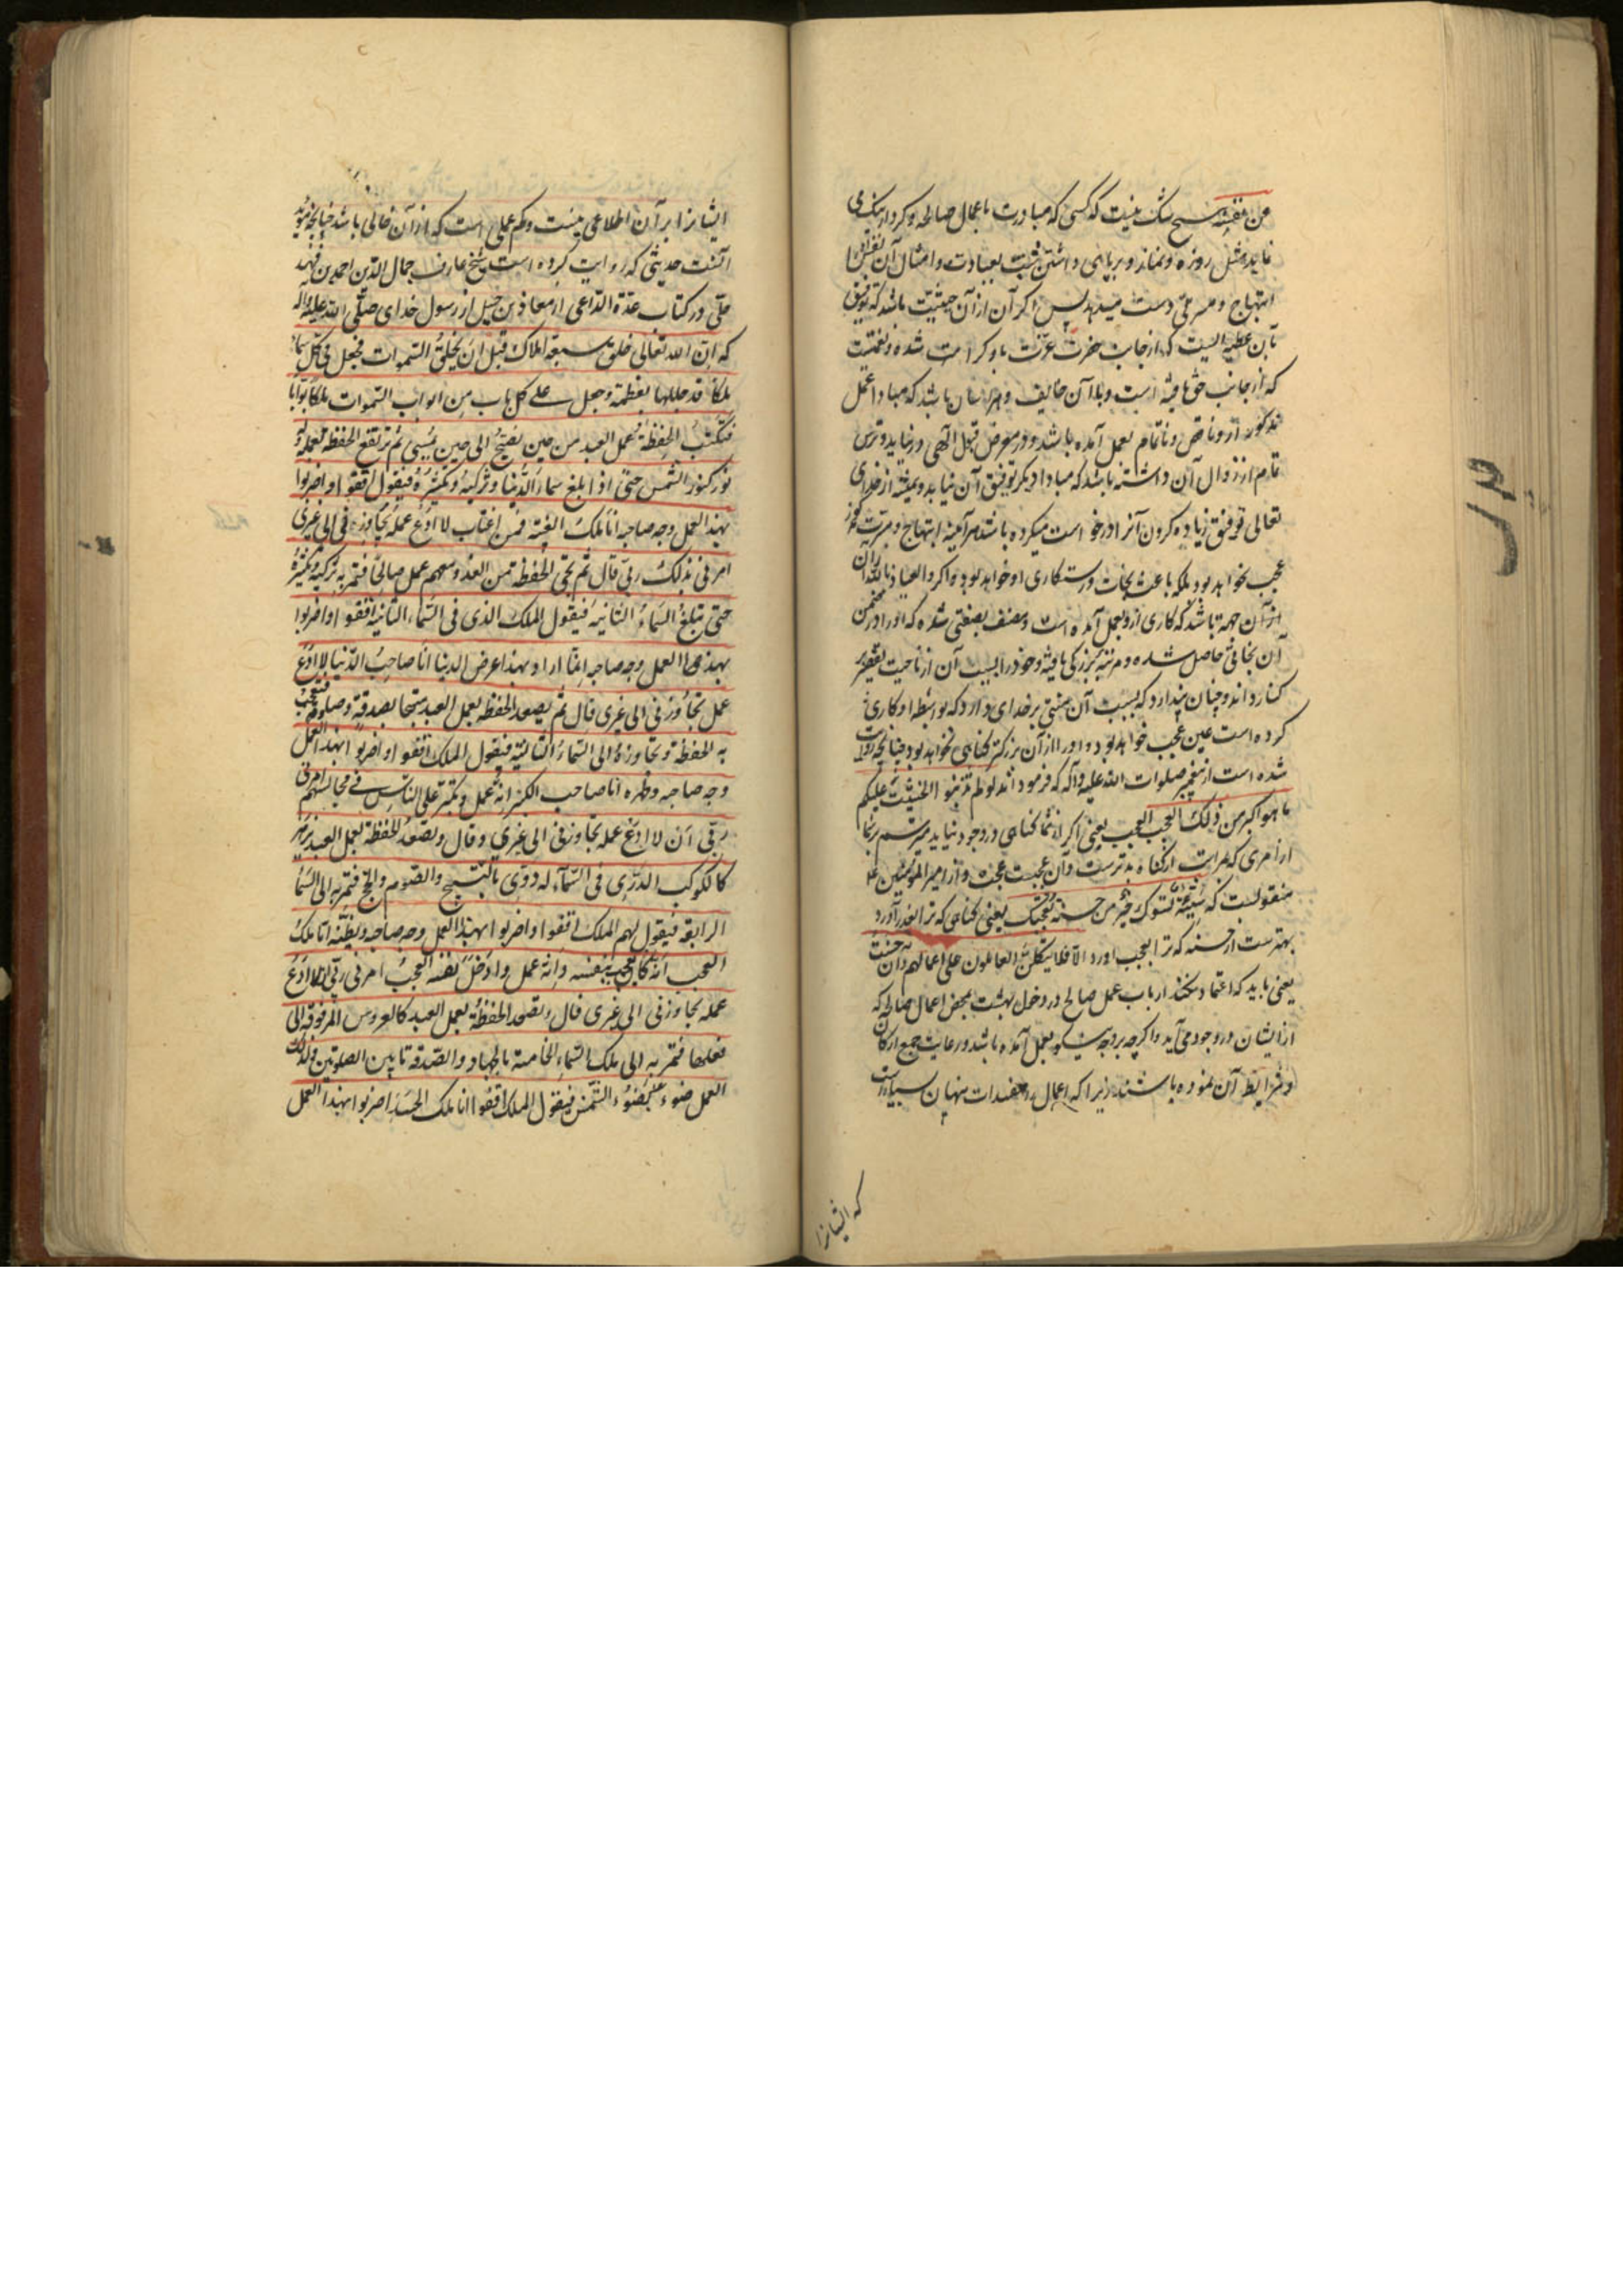 من نفسه شک نیست که کسی که مبادرت باعمال صالحه و کردار نیک می
نماید مثل روزه و نماز و برپای داشتن شب بعبادت و امثال آن نفس او را
ابتهاج و مسرتی دست میدهد پس اگر آن از آن حیثیت باشد که توفیق
بآن عطیه ایست که از جانب حضرت عزت باو کرامت شده و نعمتیست
که از جانب حق یافته است و بلاآن خایف و هراسان باشد که مبادا عمل
مذکور ازو ناقص و ناتمام بعمل آمده باشد و در معرض قبول الهی در نیاید و ترس
تمام از زوال آن داشته باشد که مبادا دیگر توفیق آن نیابد و همیشه از خدای
تعالی توفیق زیاده کردن آنرا درخواست میکرده باشد هر آینه ابتهاج و مسرت مذکور
عجب نخواهد بود بلکه باعث نجات و رستگاری او خواهد بود و اگر و العیاذ بالله آن
از آن جهة باشد که کاری ازو بعمل آمده است و متصف بصفتی شده که او را در ضمن
آن نجاتی حاصل شده و مرتبه بزرگی یافته و خود را بسبب آن از ناحیت تقصیر
کناره داند و چنان پندارد که بسبب آن منتی بر خدای دارد که بواسطه او کاری
کرده است عین عجب خواهد بود و او را از آن بزرگتر گناهی نخواهد بود چنانچه روایت
شده است از پیغمبر صلوات الله علیه و آله که فرموداند لو لم تذنبوا لخشیت علیکم
ما هو اکبر من ذلک العجب العجب یعنی اگر از شما گناهی در وجود نیاید میترسم بر شما
از امری که مراتب از گناه بدترست و آن عجبست عجب و از امیر المؤمنین علیه
منقولست که سیئة تسوءک خیر من حسنة تعجبک یعنی گناهی که ترا
بهترست از حسنه که ترا بعجب آورد الا فلا یتکلن العاملون علی اعمالهم و ان حسنت
یعنی باید که اعتماد نکنند ارباب عمل صالح در دخول بهشت بمحض اعمال صالحه که
از ایشان در وجود می آید و اگرچه بر وجه نیکو بعمل آمده باشد و رعایت جمیع ارکان
و شرایط آن نموده باشند زیرا که اعمال را مفسدات پنهان بسیارست
که ایشانرا
ایشانرا بر آن اطلاعی نیست و کم عملی است که از آن خالی باشد چنانچه مؤید
آنست حدیثی که روایت کرده است شیخ عارف جمال الدین احمد بن فهد
حلی در کتاب عدة الداعی از معاذ بن جبل از رسول خدای صلی الله علیه و آله
که ان الله تعالی خلق سبعة املاک قبل ان یخلق السموات فجعل فی کل سماء
ملکا قد جللها بعظمته و جعل علی کل باب من ابواب السموات ملکا بوابا
فتکتب الحفظة عمل العبد من حین یصبح الی حین یمسی ثم ترتفع الحفظة بعمله و له
نور کنور الشمس حتی اذا بلغ سماء الدنیا و تزکیه و تکثره فیقول قفوا و اضربوا
بهذا العمل وجه صاحبه انا ملک الغیبة فمن اغتاب لا ادع عمله یجاوزنی الی غیری
امرنی بذلک ربی قال ثم تجی الحفظة من الغد و معهم عمل صالح فتمر به تزکیه و تکثره
حتی تبلغ السماء الثانیه فیقول الملک الذی فی السماء الثانیه قفوا و اضربوا
بهذا العمل وجه صاحبه انما اراد بهذا عرض الدنیا انا صاحب الدنیا لا ادع
عمله یتجاوزنی الی غیری قال ثم یصعد الحفظة بعمل العبد مبتهجا بصدقة و صلوة فتعجب
به الحفظة و تجاوزه الی السماء الثالثة فیقول الملک قفوا و اضربوا بهذا العمل
وجه صاحبه و ظهره انا صاحب الکبر انه عمل و تکبر علی الناس فی مجالسهم امرنی
ربی ان لا ادع عمله یتجاوزنی الی غیری و قال و تصعد الحفظة بعمل العبد یزهر
کالکوکب الدری فی السماء له دوی بالتسبیح و الصوم و الحج فتمر به الی السماء
الرابعة فیقول لهم الملک قفوا و اضربوا بهذا العمل وجه صاحبه و بطنه انا ملک
العجب انه کان یعجب بنفسه و انه عمل و ادخل نفسه العجب امرنی ربی ان لا ادع
عمله یتجاوزنی الی غیری قال و تصعد الحفظة بعمل العبد کالعروس المزفوفة الی
بعلها فتمر به الی ملک السماء الخامسة بالجهاد و الصدقة ما بین الصلوتین و لذلک
العمل ضوء کضوء الشمس فیقول الملک قفوا انا ملک الحسد اضربوا بهذا العمل